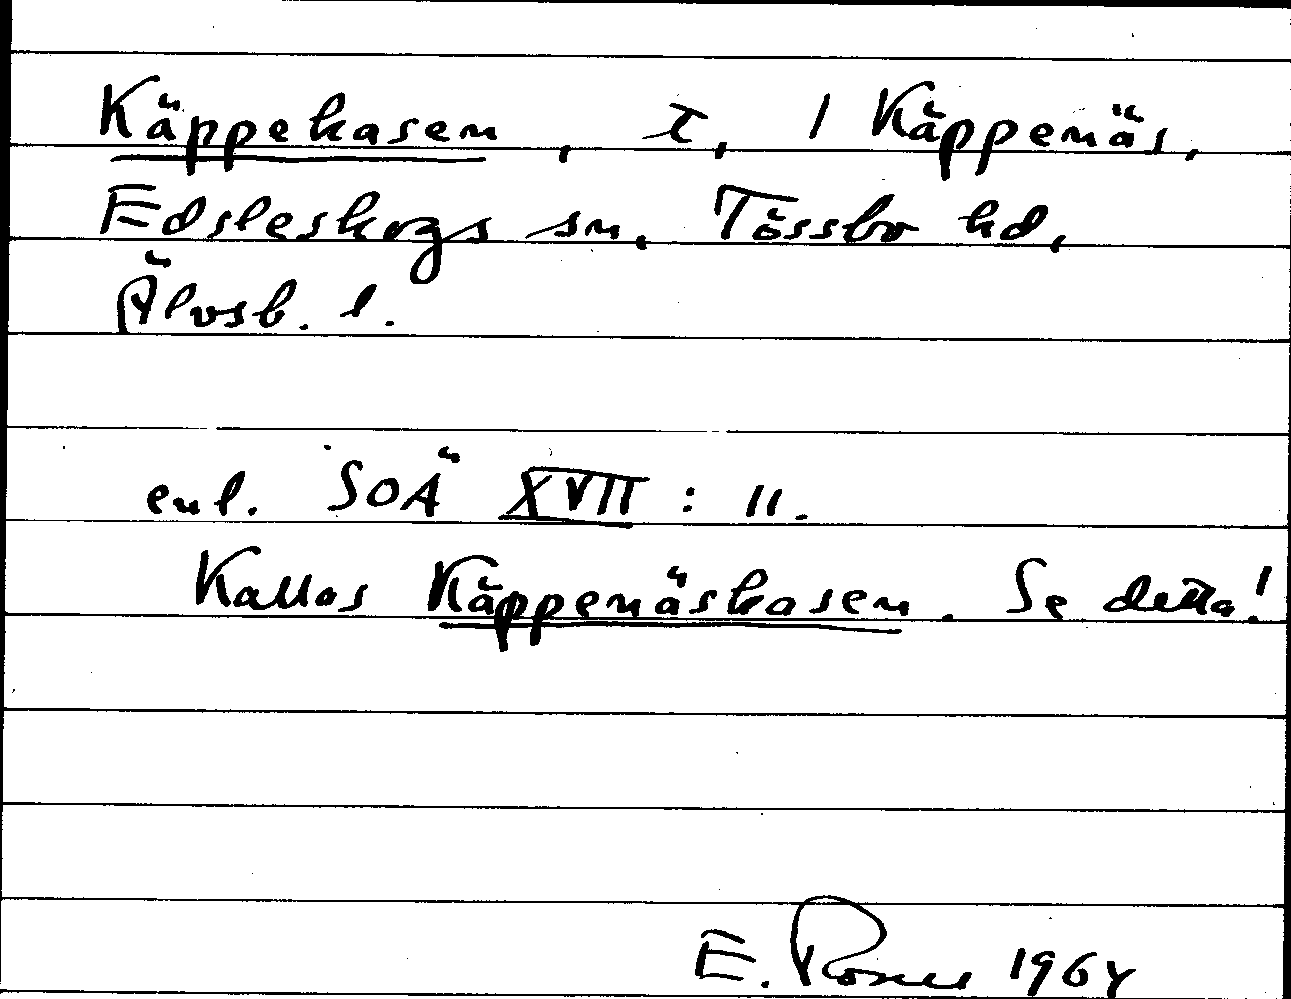 Käppekasen, t, 1 Käppenäs,
Edsleskogs sn, Tössbo hd,
Älvsb. l.
enl. SOÄ XVII : 11.
Kallas Käppenäskasen. Se detta!
E. 1964